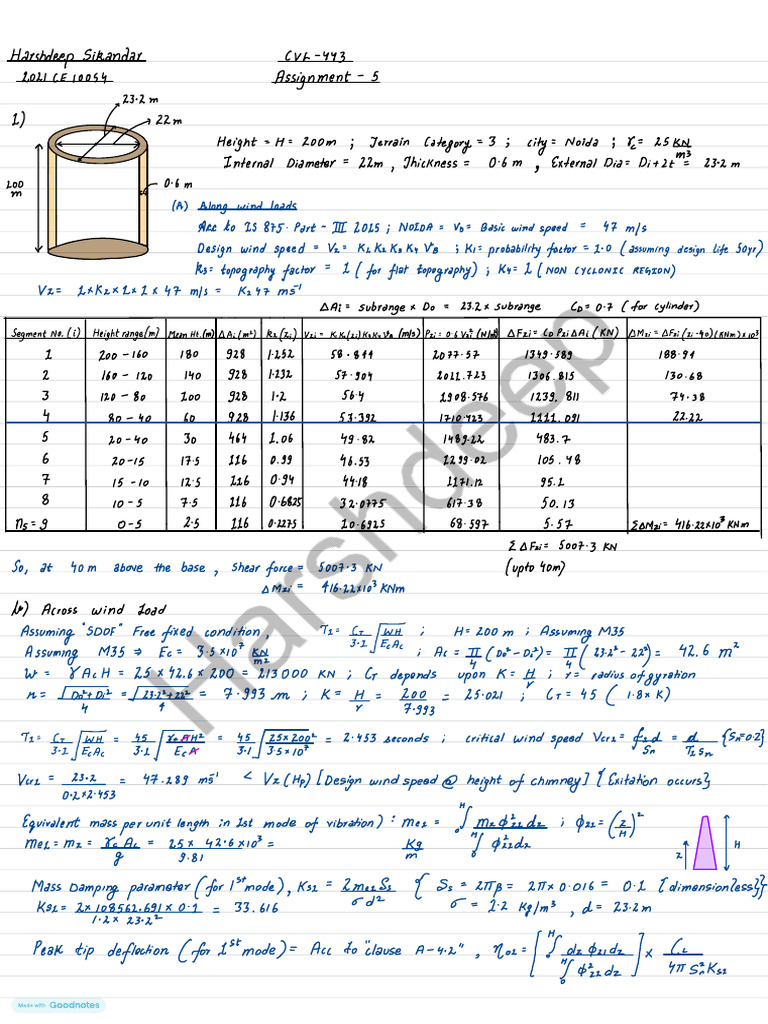 Harshdeep Sikandar CVL-443
2021CE10054 Assignment - 5
23.2 m
22 m
1)
Height = H = 200m ; Terrain Category = 3 ; city = Noida ; γc = 25 KN/m3
Internal Diameter = 22m , Thickness = 0.6 m , External Dia = Di+2t = 23.2 m
200 m
0.6 m
(A) Along wind loads
Acc to IS 875. Part - III 2015 ; NOIDA = VB = Basic wind speed = 47 m/s
Design wind speed = Vz = K1 K2 K3 K4 VB ; K1 = probability factor = 1.0 (assuming design life 50yr)
K3 = topography factor = 1 (for flat topography) ; K4 = 1 (NON CYCLONIC REGION)
Vz = 1×K2×1×1×47 m/s = K2 47 ms-1
ΔAi = subrange × Do = 23.2 × subrange CD = 0.7 (for cylinder)
Segment No. (i) Height range (m) Mean Ht. (m) ΔAi (m²) k2 (Zi) Vzi = K1 K2(zi) K3 K4 VB (m/s) Pzi = 0.6 Vzi² (N/m²) ΔFzi = CD Pzi ΔAi (KN) ΔMzi = ΔFzi (Zi-40) (KNm) ×10³
1 200 - 160 180 928 1.252 58.844 2077.57 1349.589 188.94
2 160 - 120 140 928 1.232 57.904 2011.723 1306.815 130.68
3 120 - 80 100 928 1.2 56.4 1908.576 1239.811 74.38
4 80 - 40 60 928 1.136 53.392 1710.423 1111.091 22.22
5 20-40 30 464 1.06 49.82 1489.22 483.7
6 20-15 17.5 116 0.99 46.53 1299.02 105.48
7 15 - 10 12.5 116 0.94 44.18 1171.12 95.1
8 10 - 5 7.5 116 0.6825 32.0775 617.38 50.13
ns = 9 0-5 2.5 116 0.2275 10.6925 68.597 5.57 ΣΔMzi = 416.22×10³ KNm
ΣΔFzi = 5007.3 KN
(upto 40m)
So, at 40m above the base, Shear force = 5007.3 KN
ΔMzi = 416.22×10³ KNm
b) Across wind Load
Assuming "SDOF" Free fixed condition, T1 = CT/3.1 √(WH/EcAc) ; H = 200 m ; Assuming M35
Assuming M35 ⇒ Ec = 3.5×10⁷ KN/m2 ; Ac = π/4 (Do² - Di²) = π/4 (23.2² - 22²) = 42.6 m²
W = γ Ac H = 25 × 42.6 × 200 = 213000 KN ; CT depends upon K = H/r ; r = radius of gyration
r = √(Do²+Di²)/4 = √(23.2²+22²)/4 = 7.993 m ; K = H/r = 200/7.993 = 25.021 ; CT = 45 (1.8×K)
T1 = CT/3.1 √(WH/EcAc) = 45/3.1 √(γc A H²/Ec A) = 45/3.1 √(25×200²/3.5×10⁷) = 2.453 seconds ; critical wind speed Vcr1 = f1 d/Sn = d/T1 Sn {Sn=0.2}
Vcr1 = 23.2/0.2×2.453 = 47.289 ms-1 < Vz (HP) [Design wind speed @ height of chimney] {Exitation occurs}
Equivalent mass per unit length in 1st mode of vibration) : me1 = ∫0H mz φ²z1 dz / ∫0H φ²z1 dz ; φz1 = (z/H)²
me1 = mz = γc Ac/g = 25 × 42.6×10³/9.81 = Kg/m
z H
Mass Damping parameter (for 1st mode), Ks1 = 2 me1 Ss/σ d² { Ss = 2πβ = 2π×0.016 = 0.1 {dimensionless}}
Ks1 = 2×108562.691×0.1/1.2 × 23.2² = 33.616 σ = 1.2 Kg/m³, d = 23.2m
Peak tip deflection (for 1st mode) = Acc to "clause A-4.2", η01 = [∫0H dz φz1 dz / ∫0H φ²z1 dz] × CL/4π Sn² Ks1
Harshdeep
Made with Goodnotes